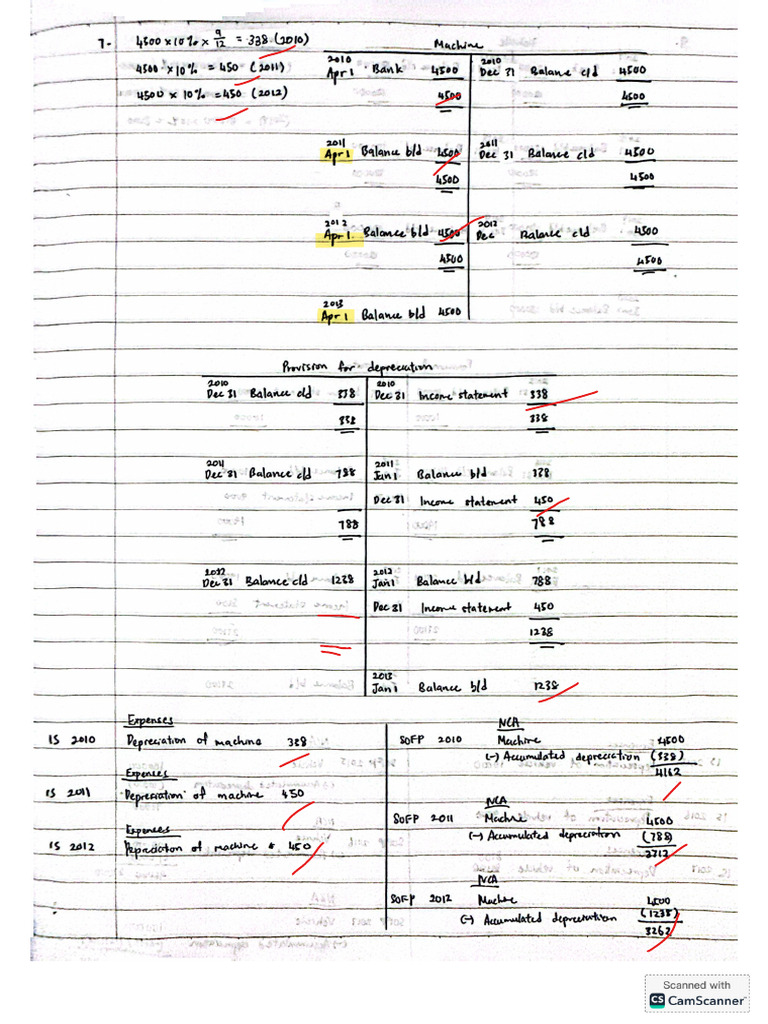 7- 4500 × 10% × 9/12 = 338 (2010)
4500 × 10% = 450 (2011)
4500 × 10% = 450 (2012)
Machine
2010 2010
Apr 1 Bank 4500 Dec 31 Balance c/d 4500
4500 4500
2011 2011
Apr 1 Balance b/d 4500 Dec 31 Balance c/d 4500
4500 4500
2012 2012
Apr 1. Balance b/d 4500 Dec Balance c/d 4500
4500 4500
2013
Apr 1 Balance b/d 4500
Provision for depreciation
2010 2010
Dec 31 Balance c/d 338 Dec 31 Income statement 338
338 338
2011 2011
Dec 31 Balance c/d 788 Jan 1 Balance b/d 338
Dec 31 Income statement 450
788 788
2012 2012
Dec 31 Balance c/d 1238 Jan 1 Balance b/d 788
Dec 31 Income statement 450
1238
2013
Jan 1 Balance b/d 1238
Expenses NCA
IS 2010 Depreciation of machine 338 SOFP 2010 Machine 4500
(-) Accumulated depreciation (338)
Expenses 4162
IS 2011 Depreciation of machine 450 NCA
SOFP 2011 Machine 4500
Expenses (-) Accumulated depreciation (788)
IS 2012 Depreciation of machine 450 3712
NCA
SOFP 2012 Machine 4500
(-) Accumulated depreciation (1238)
3262
Scanned with
CS CamScanner